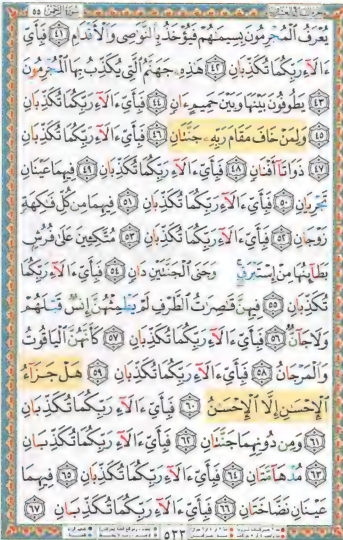 سورة الرحمن ٥٥
يُعْرَفُ الْمُجْرِمُونَ بِسِيمَٰهُمْ فَيُؤْخَذُ بِالنَّوَٰصِى وَالْأَقْدَامِ ٤١ فَبِأَىِّ
ءَالَآءِ رَبِّكُمَا تُكَذِّبَانِ ٤٢ هَٰذِهِۦ جَهَنَّمُ الَّتِى يُكَذِّبُ بِهَا الْمُجْرِمُونَ
٤٣ يَطُوفُونَ بَيْنَهَا وَبَيْنَ حَمِيمٍ ءَانٍ ٤٤ فَبِأَىِّ ءَالَآءِ رَبِّكُمَا تُكَذِّبَانِ
٤٥ وَلِمَنْ خَافَ مَقَامَ رَبِّهِۦ جَنَّتَانِ ٤٦ فَبِأَىِّ ءَالَآءِ رَبِّكُمَا تُكَذِّبَانِ
٤٧ ذَوَاتَآ أَفْنَانٍ ٤٨ فَبِأَىِّ ءَالَآءِ رَبِّكُمَا تُكَذِّبَانِ ٤٩ فِيهِمَا عَيْنَانِ
تَجْرِيَانِ ٥٠ فَبِأَىِّ ءَالَآءِ رَبِّكُمَا تُكَذِّبَانِ ٥١ فِيهِمَا مِن كُلِّ فَٰكِهَةٍ
زَوْجَانِ ٥٢ فَبِأَىِّ ءَالَآءِ رَبِّكُمَا تُكَذِّبَانِ ٥٣ مُتَّكِـِٔينَ عَلَىٰ فُرُشٍۭ
بَطَآئِنُهَا مِنْ إِسْتَبْرَقٍ وَجَنَى الْجَنَّتَيْنِ دَانٍ ٥٤ فَبِأَىِّ ءَالَآءِ رَبِّكُمَا
تُكَذِّبَانِ ٥٥ فِيهِنَّ قَٰصِرَٰتُ الطَّرْفِ لَمْ يَطْمِثْهُنَّ إِنسٌ قَبْلَهُمْ
وَلَا جَآنٌّ ٥٦ فَبِأَىِّ ءَالَآءِ رَبِّكُمَا تُكَذِّبَانِ ٥٧ كَأَنَّهُنَّ الْيَاقُوتُ
وَالْمَرْجَانُ ٥٨ فَبِأَىِّ ءَالَآءِ رَبِّكُمَا تُكَذِّبَانِ ٥٩ هَلْ جَزَآءُ
الْإِحْسَٰنِ إِلَّا الْإِحْسَٰنُ ٦٠ فَبِأَىِّ ءَالَآءِ رَبِّكُمَا تُكَذِّبَانِ
٦١ وَمِن دُونِهِمَا جَنَّتَانِ ٦٢ فَبِأَىِّ ءَالَآءِ رَبِّكُمَا تُكَذِّبَانِ
٦٣ مُدْهَآمَّتَانِ ٦٤ فَبِأَىِّ ءَالَآءِ رَبِّكُمَا تُكَذِّبَانِ ٦٥ فِيهِمَا
عَيْنَانِ نَضَّاخَتَانِ ٦٦ فَبِأَىِّ ءَالَآءِ رَبِّكُمَا تُكَذِّبَانِ ٦٧
٥٣٣